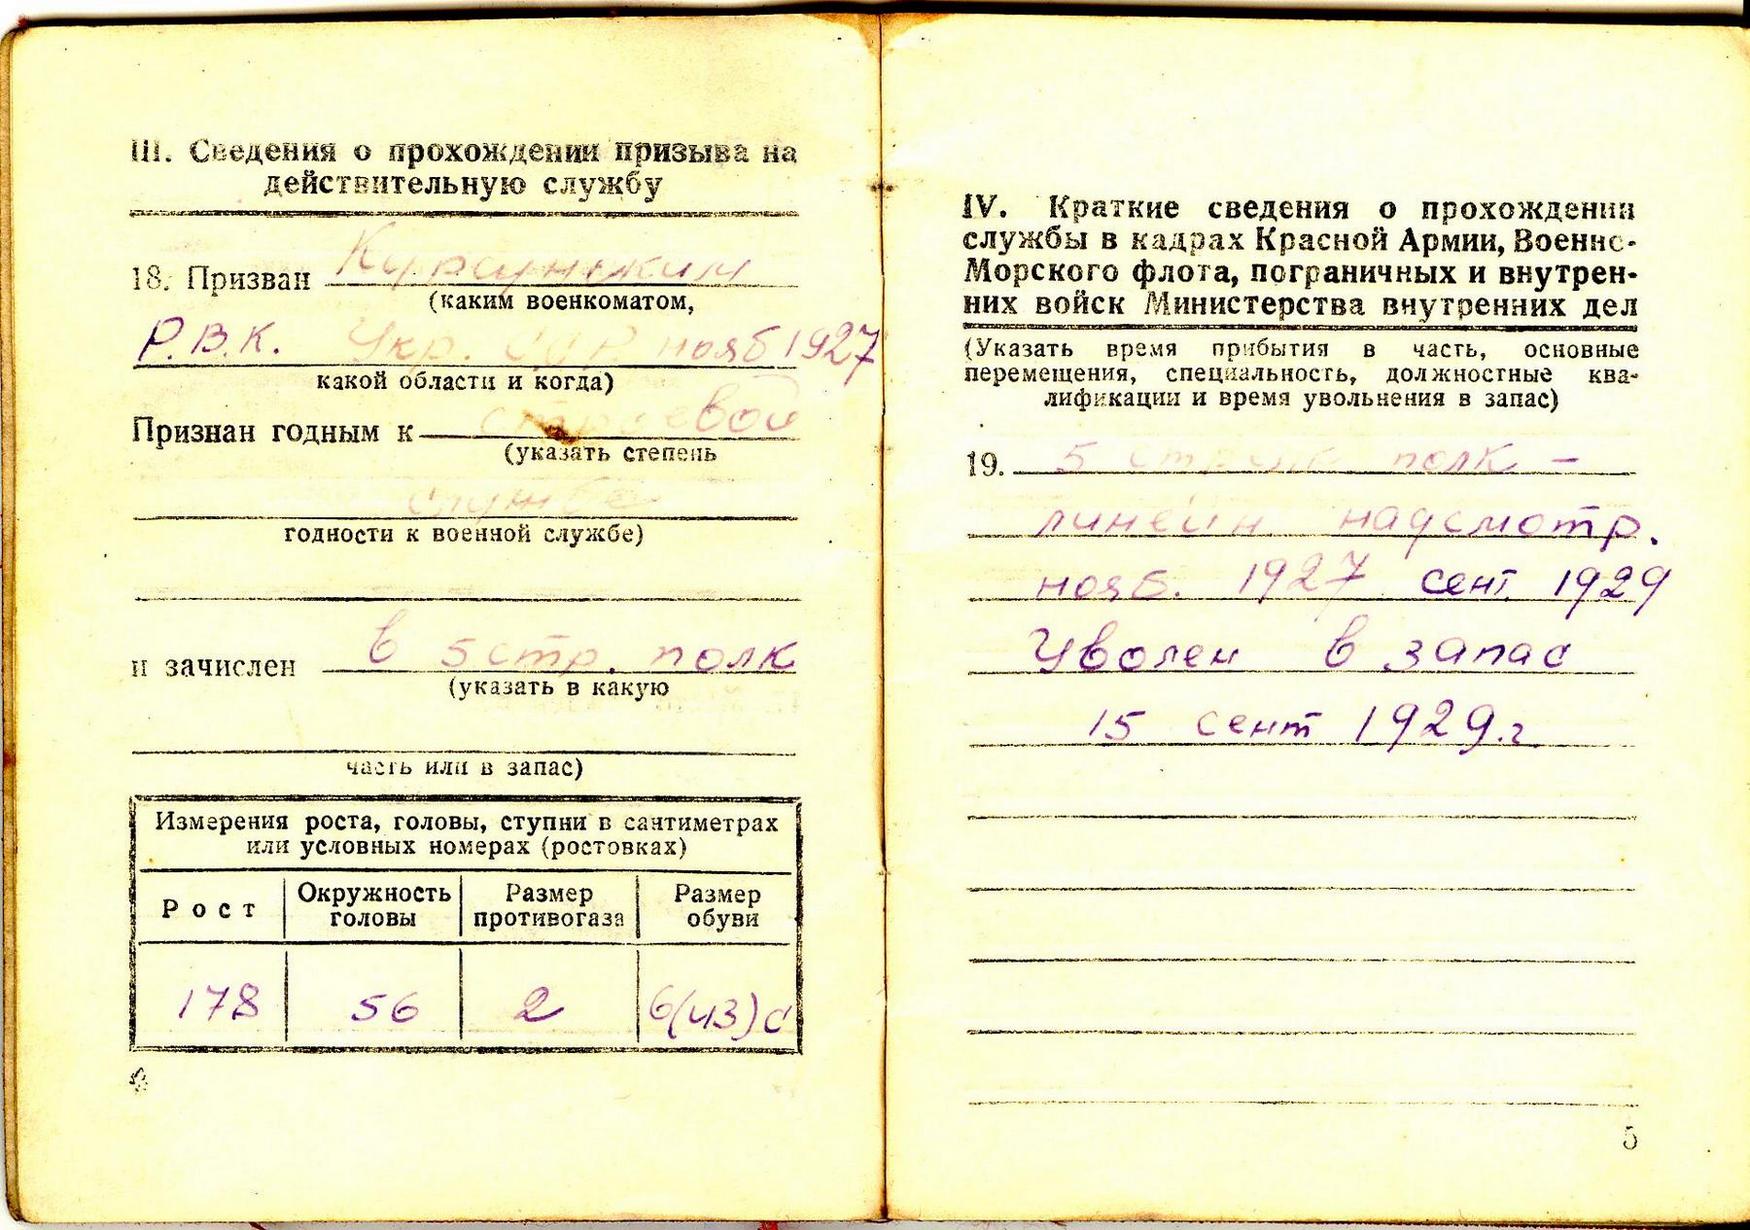 III. Сведения о прохождении призыва на
действительную службу
18. Призван
(каким военкоматом,
Р.В.К. Укр. ССР нояб 1927
какой области и когда)
Признан годным к строевой
(указать степень
службе
годности к военной службе)
и зачислен в 5 стр. полк
(указать в какую
часть или в запас)
Измерения роста, головы, ступни в сантиметрах
или условных номерах (ростовках)
Рост Окружность головы Размер противогаза Размер обуви
178 56 2 6(43)с
IV. Краткие сведения о прохождении
службы в кадрах Красной Армии, Военно-
Морского флота, пограничных и внутрен-
них войск Министерства внутренних дел
(Указать время прибытия в часть, основные
перемещения, специальность, должностные ква-
лификации и время увольнения в запас)
19. 5 полк -
линейн надсмотр.
нояб. 1927 сент. 1929
Уволен в запас
15 сент 1929.г
5